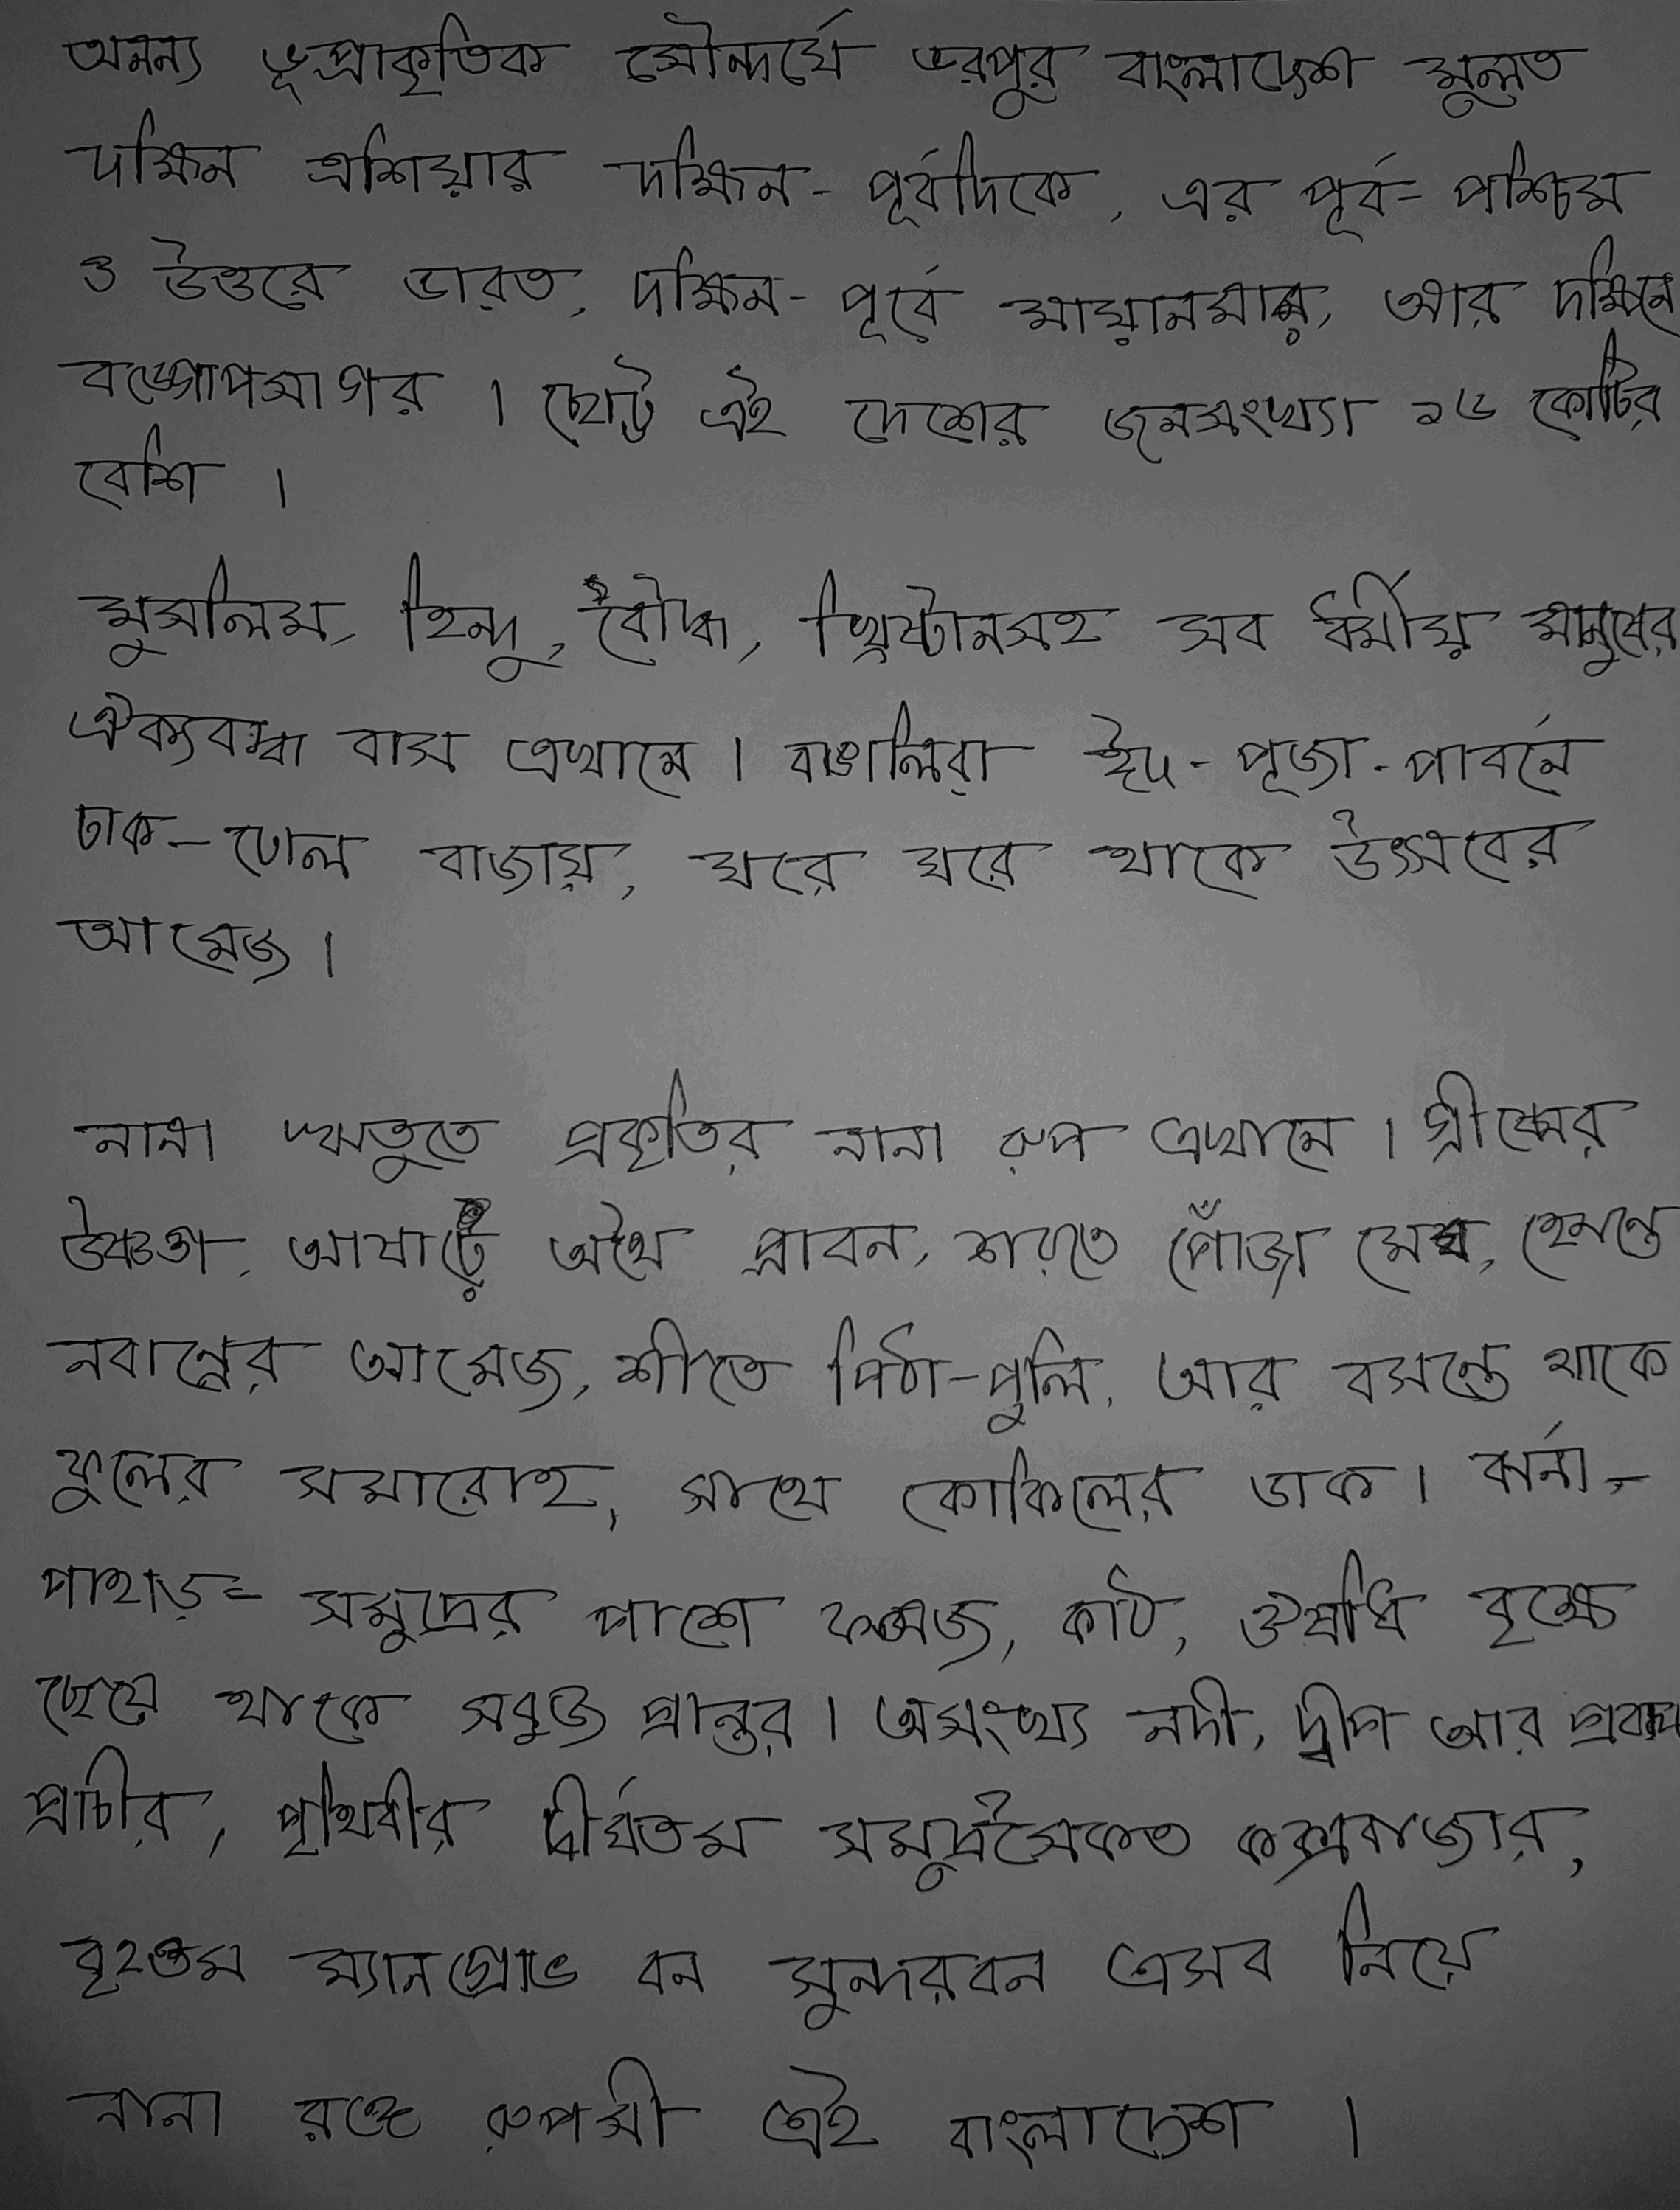 অনন্য ভূপ্রাকৃতিক সৌন্দর্যে ভরপুর বাংলাদেশ মূলত
দক্ষিন এশিয়ার দক্ষিন-পূর্বদিকে, এর পূর্ব-পশ্চিম
ও উত্তরে ভারত, দক্ষিন-পূর্বে মায়ানমার, আর দক্ষিনে
বঙ্গোপসাগর। ছোট্ট এই দেশের জনসংখ্যা ১৬ কোটির
বেশি।
মুসলিম, হিন্দু, বৌদ্ধ, খ্রিষ্টানসহ সব ধর্মীয় মানুষের
ঐক্যবদ্ধ বাস এখানে। বাঙালিরা ঈদ-পূজা-পাবর্নে
ঢাক-ঢোল বাজায়, ঘরে ঘরে থাকে উৎসবের
আমেজ।
নানা ঋতুতে প্রকৃতির নানা রুপ এখানে। গ্রীষ্মের
উষ্ণতা, আষাঢ়ে অথৈ প্লাবন, শরতে পেঁজা মেঘ, হেমন্তে
নবান্নের আমেজ, শীতে পিঠা-পুলি, আর বসন্তে থাকে
ফুলের সমারোহ, সাথে কোকিলের ডাক। ঝর্না-
পাহাড়-সমুদ্রের পাশে ফলজ, কাঠ, ঔষধি বৃক্ষে
ছেয়ে থাকে সবুজ প্রান্তর। অসংখ্য নদী, দ্বীপ আর প্রবাল
প্রাচীর, পৃথিবীর দীর্ঘতম সমুদ্রসৈকত কক্সবাজার,
বৃহত্তম ম্যানগ্রোভ বন সুন্দরবন এসব নিয়ে
নানা রঙে রুপসী এই বাংলাদেশ।